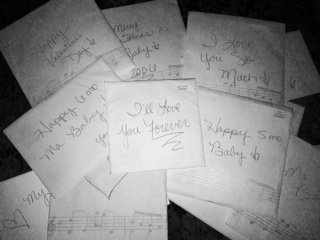 Happy
Valentines
Day
Merry
Baby
2006
I Love
You So
Much
Happy 4 mo
Ma Baby
I'll Love
You Forever
Happy 5 mo
Baby
My
Ma